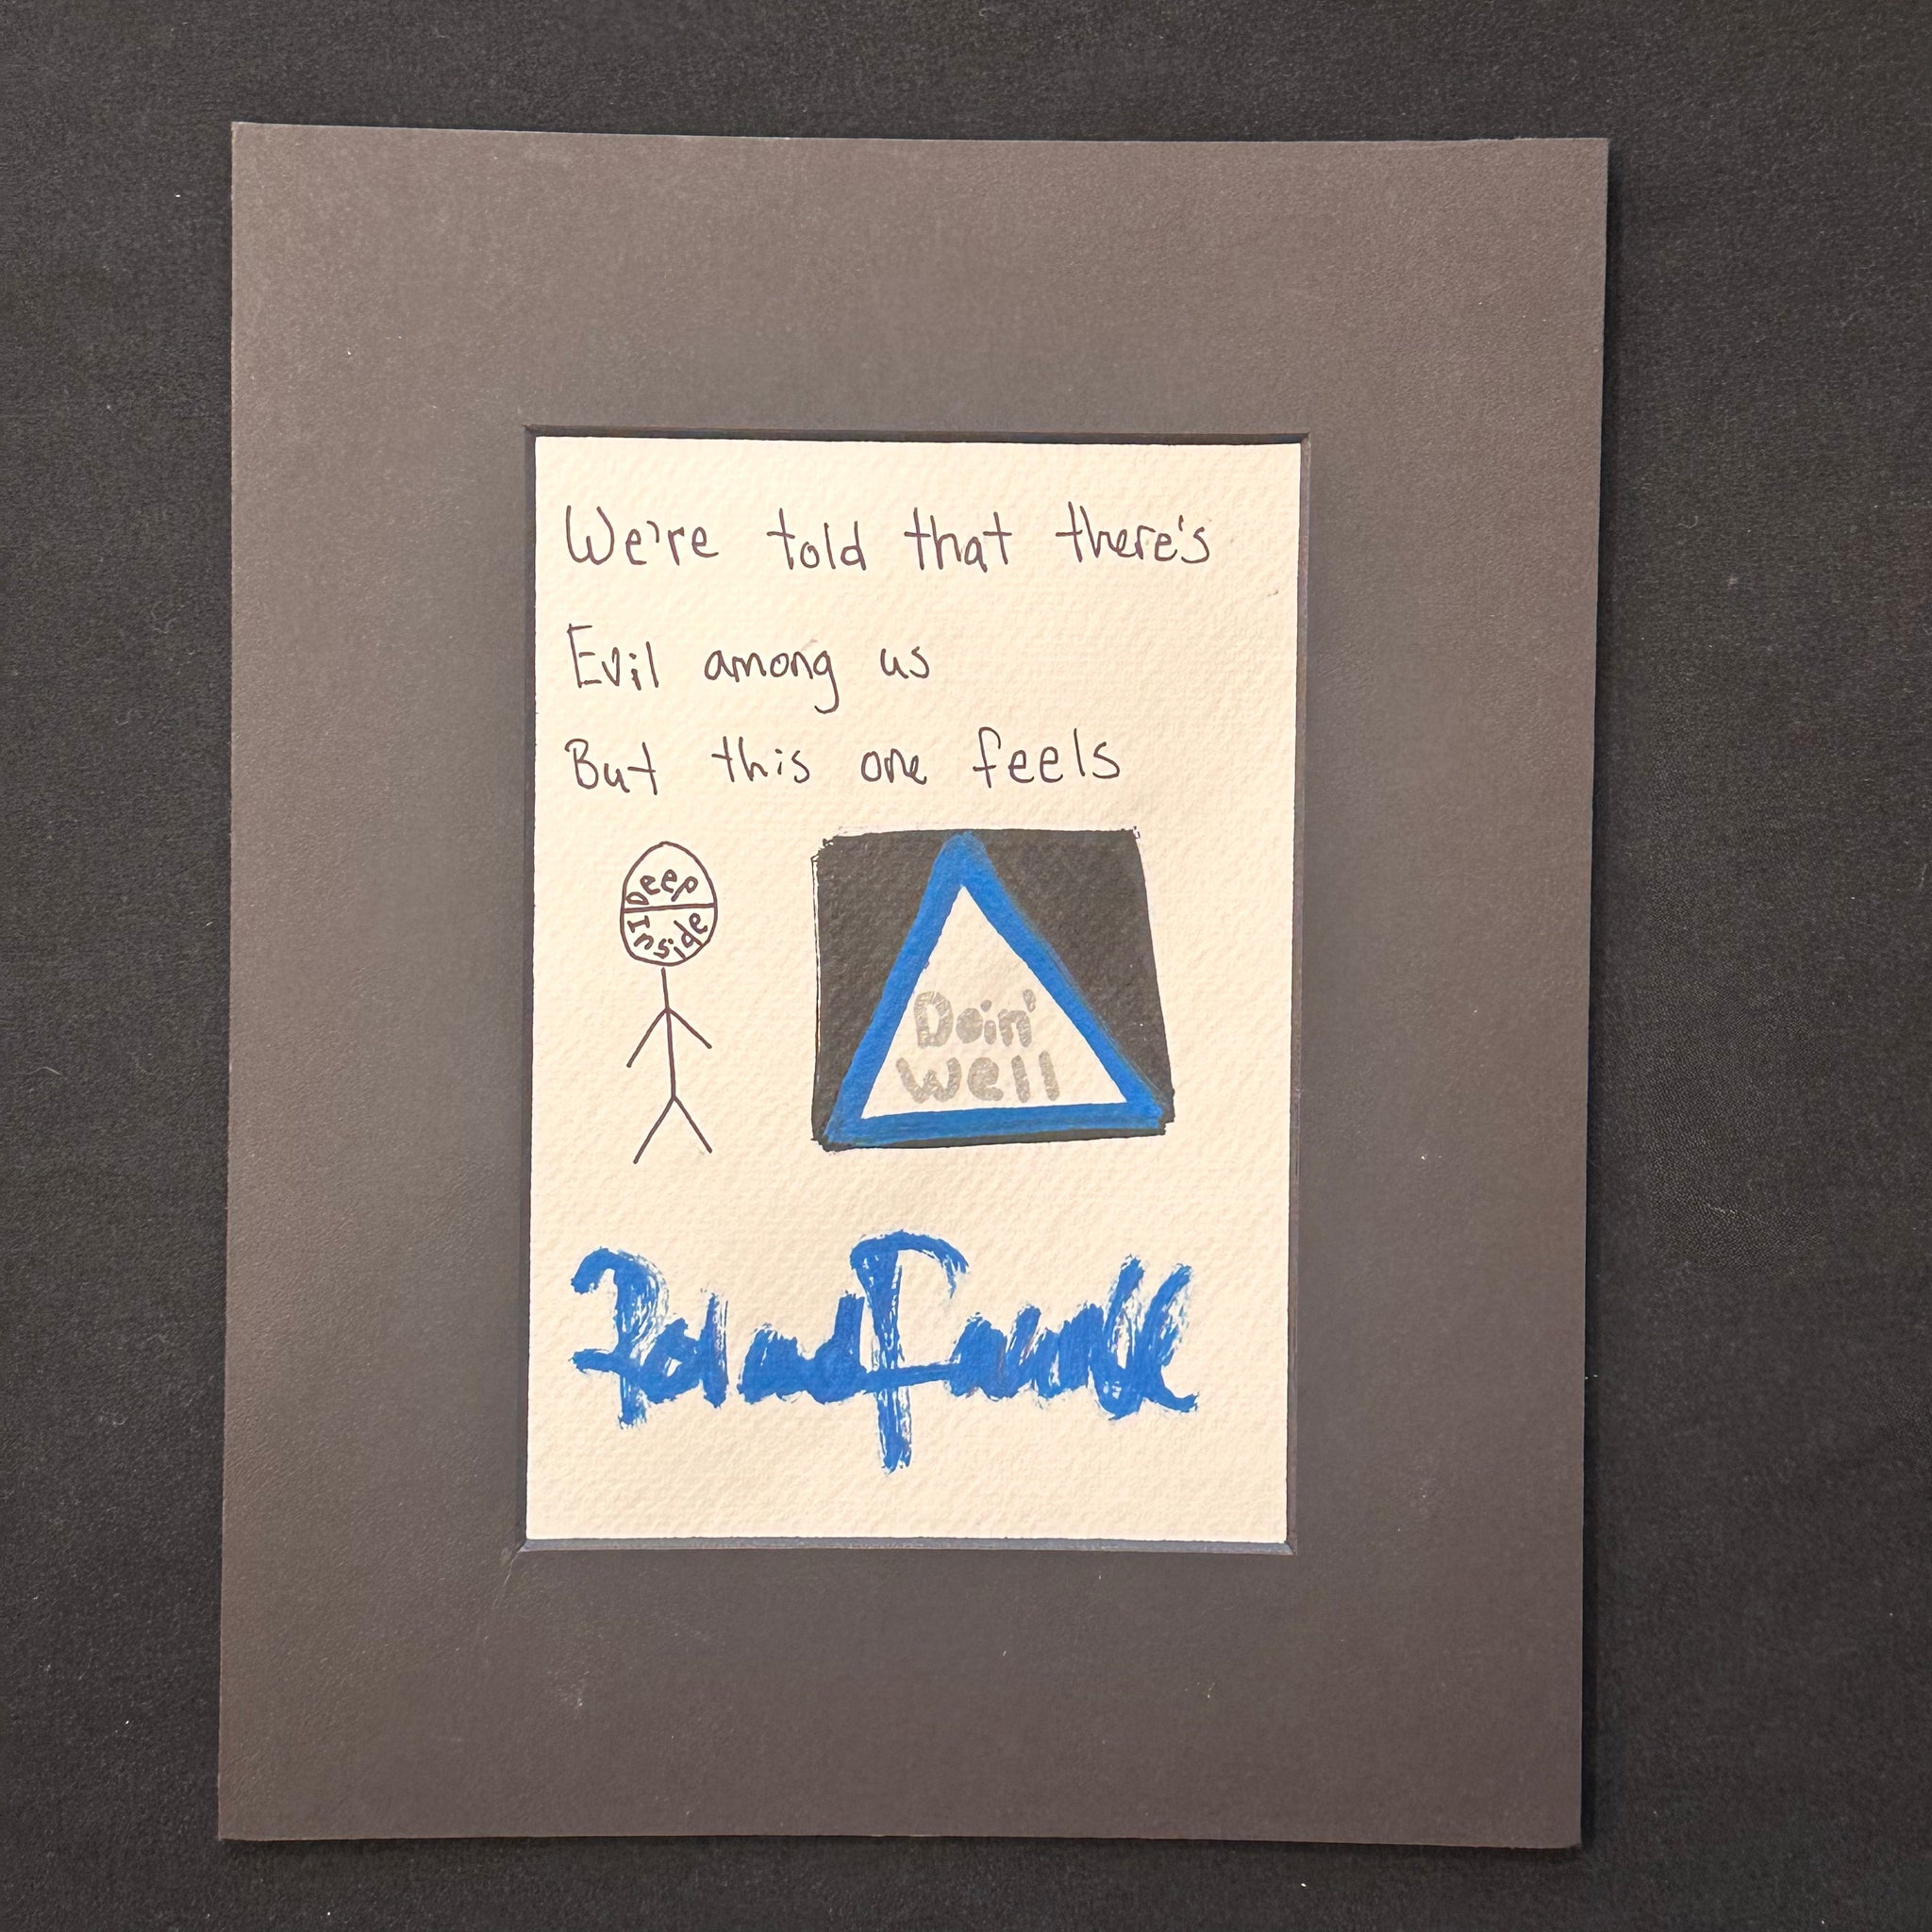 We're told that there's
Evil among us
But this one feels
Deep
Inside
Doin'
Well